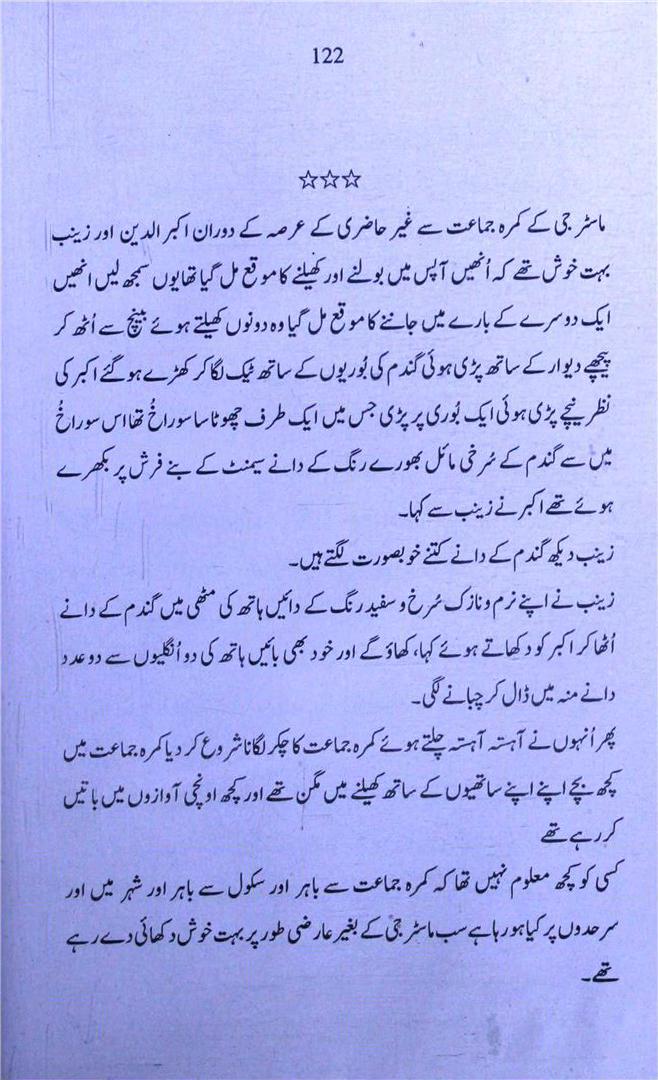 122
☆☆☆
ماسٹر جی کے کمرہ جماعت سے غیر حاضری کے عرصہ کے دوران اکبر الدین اور زینب
بہت خوش تھے کہ اُنھیں آپس میں بولنے اور کھیلنے کا موقع مل گیا تھا یوں سمجھ لیں انھیں
ایک دوسرے کے بارے میں جاننے کا موقع مل گیا وہ دونوں کھیلتے ہوئے بینچ سے اُٹھ کر
پیچھے دیوار کے ساتھ پڑی ہوئی گندم کی بُوریوں کے ساتھ ٹیک لگا کر کھڑے ہو گئے اکبر کی
نظر نیچے پڑی ہوئی ایک بُوری پر پڑی جس میں ایک طرف چھوٹا سا سوراخُ تھا اس سوراخُ
میں سے گندم کے سُرخی مائل بھورے رنگ کے دانے سیمنٹ کے بنے فرش پر بکھرے
ہوئے تھے اکبر نے زینب سے کہا۔
زینب دیکھ گندم کے دانے کتنے خوبصورت لگتے ہیں۔
زینب نے اپنے نرم و نازک سُرخ و سفید رنگ کے دائیں ہاتھ کی مٹھی میں گندم کے دانے
اُٹھا کر اکبر کو دکھاتے ہوئے کہا، کھاؤ گے اور خود بھی بائیں ہاتھ کی دو اُنگلیوں سے دو عدد
دانے منہ میں ڈال کر چبانے لگی۔
پھر اُنہوں نے آہستہ آہستہ چلتے ہوئے کمرہ جماعت کا چکر لگانا شروع کر دیا کمرہ جماعت میں
کچھ بچے اپنے اپنے ساتھیوں کے ساتھ کھیلنے میں مگن تھے اور کچھ اونچی آوازوں میں باتیں
کر رہے تھے
کسی کو کچھ معلوم نہیں تھا کہ کمرہ جماعت سے باہر اور سکول سے باہر اور شہر میں اور
سرحدوں پر کیا ہو رہا ہے سب ماسٹر جی کے بغیر عارضی طور پر بہت خوش دکھائی دے رہے
تھے۔